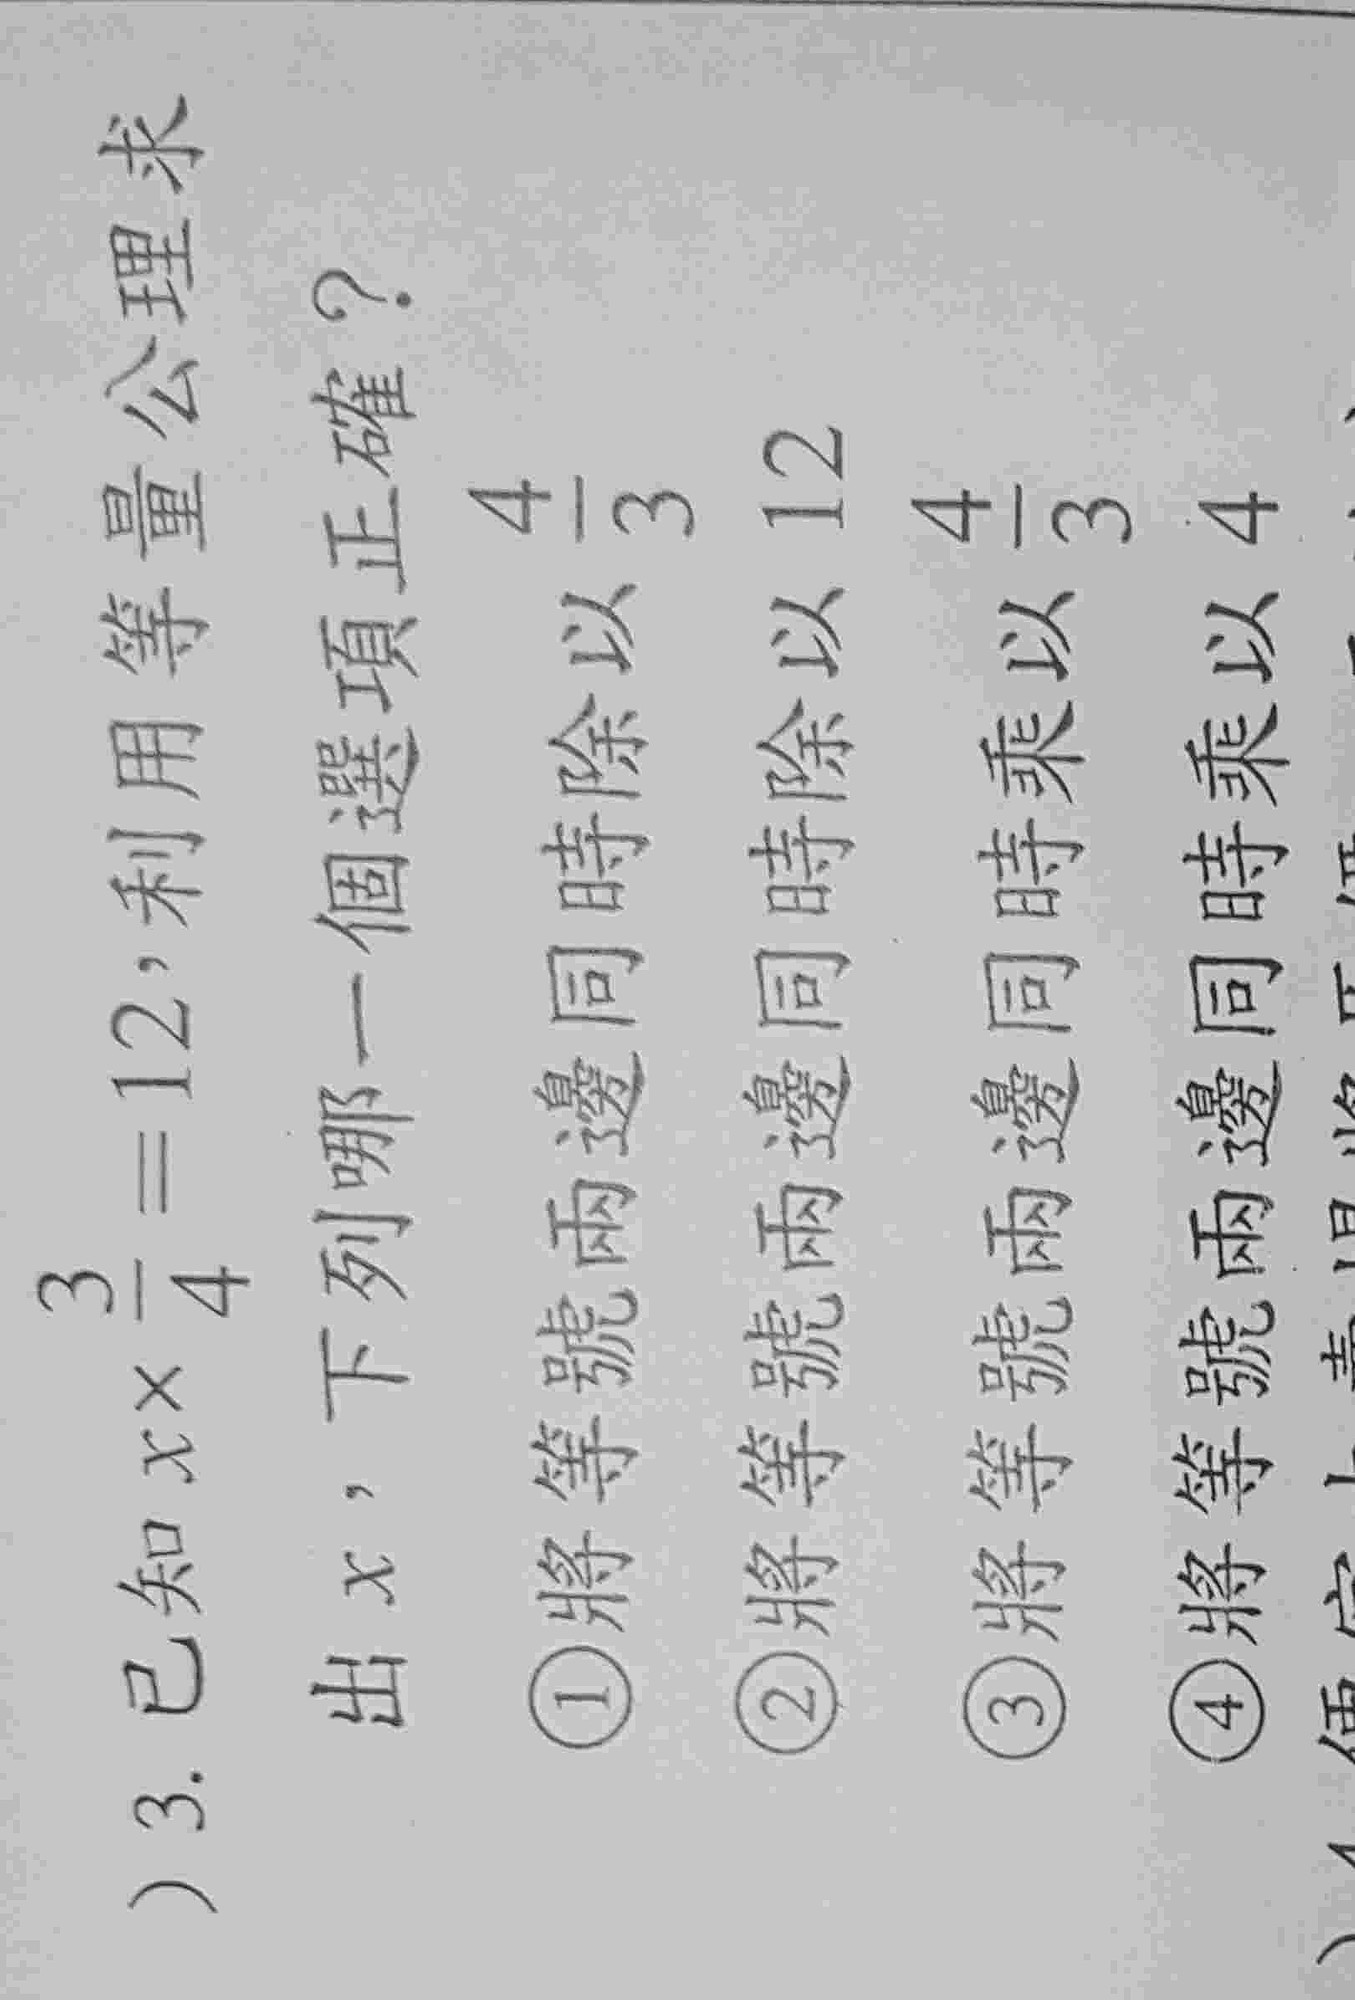 )3. 已知 x×3/4=12,利用等量公理求
出 x,下列哪一個選項正確?
①將等號兩邊同時除以 4/3
②將等號兩邊同時除以 12
③將等號兩邊同時乘以 4/3
④將等號兩邊同時乘以 4